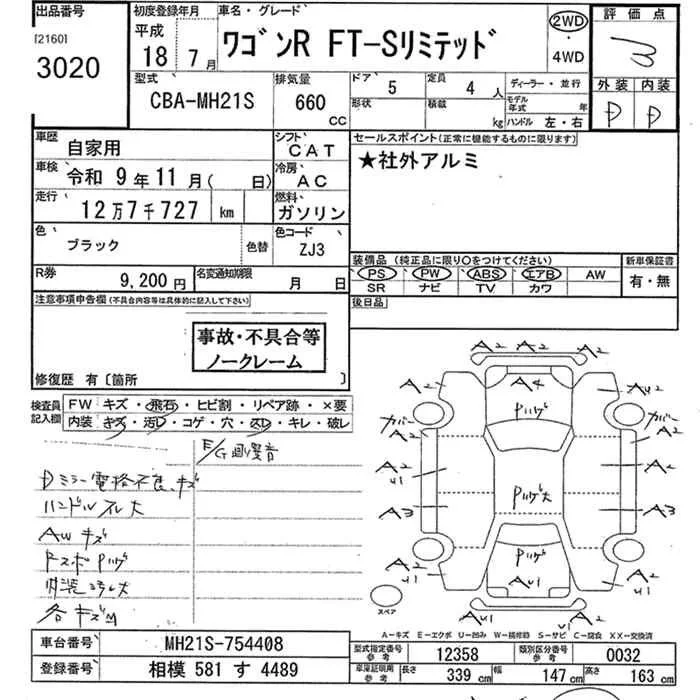 出品番号
[2160]
3020
初度登録年月
平成
18年 7月
車名・グレード
ワゴンR FT-Sリミテッド
2WD
4WD
評価点
3
外装 内装
D D
型式
CBA-MH21S
排気量
660 CC
ドア 5
定員 4人
形状
積載 kg
ディーラー・並行
モデル年式 年
ハンドル 左・右
車歴
自家用
シフト
CAT
車検 令和 9年11月( 日)
冷房
AC
走行
12万7千727 km
燃料
ガソリン
色
ブラック
色替
色コード
ZJ3
R券
9,200円
名変通知期限
月 日
セールスポイント(正常に機能するものに限ります)
★社外アルミ
装備品(純正品に限り○をつけてください)
PS PW ABS エアB AW
SR ナビ TV カワ
新車保証書
有・無
後日品
注意事項申告欄(不具合内容等は具体的に記入して下さい)
事故・不具合等
ノークレーム
修復歴 有〔箇所 〕
検査員記入欄
FW キズ・飛石・ヒビ割・リペア跡・×要
内装 キズ・汚レ・コゲ・穴・スレ・キレ・破レ
E/G 異音
Dミラー電格不良、キズ
ハンドルスレ大
AWキズ
内装汚レ大
各キズ凹
A2 A2 A2
A2 A4 AU2
Pハゲ
カバー カバー
A2 A2
A2 U1 A2
Pハゲ大
A3 A3
Pハゲ
A2 U1 AU1 A2 U1
AU1 A2
スペア
A-キズ E-エクボ U-凹み W-補修跡 S-サビ C-腐食 XX-交換済
車台番号 MH21S-754408
登録番号 相模 581 す 4489
型式指定番号 参考 12358
類別区分番号 参考 0032
車庫証明用 参考
長さ 339 cm 幅 147 cm 高さ 163 cm